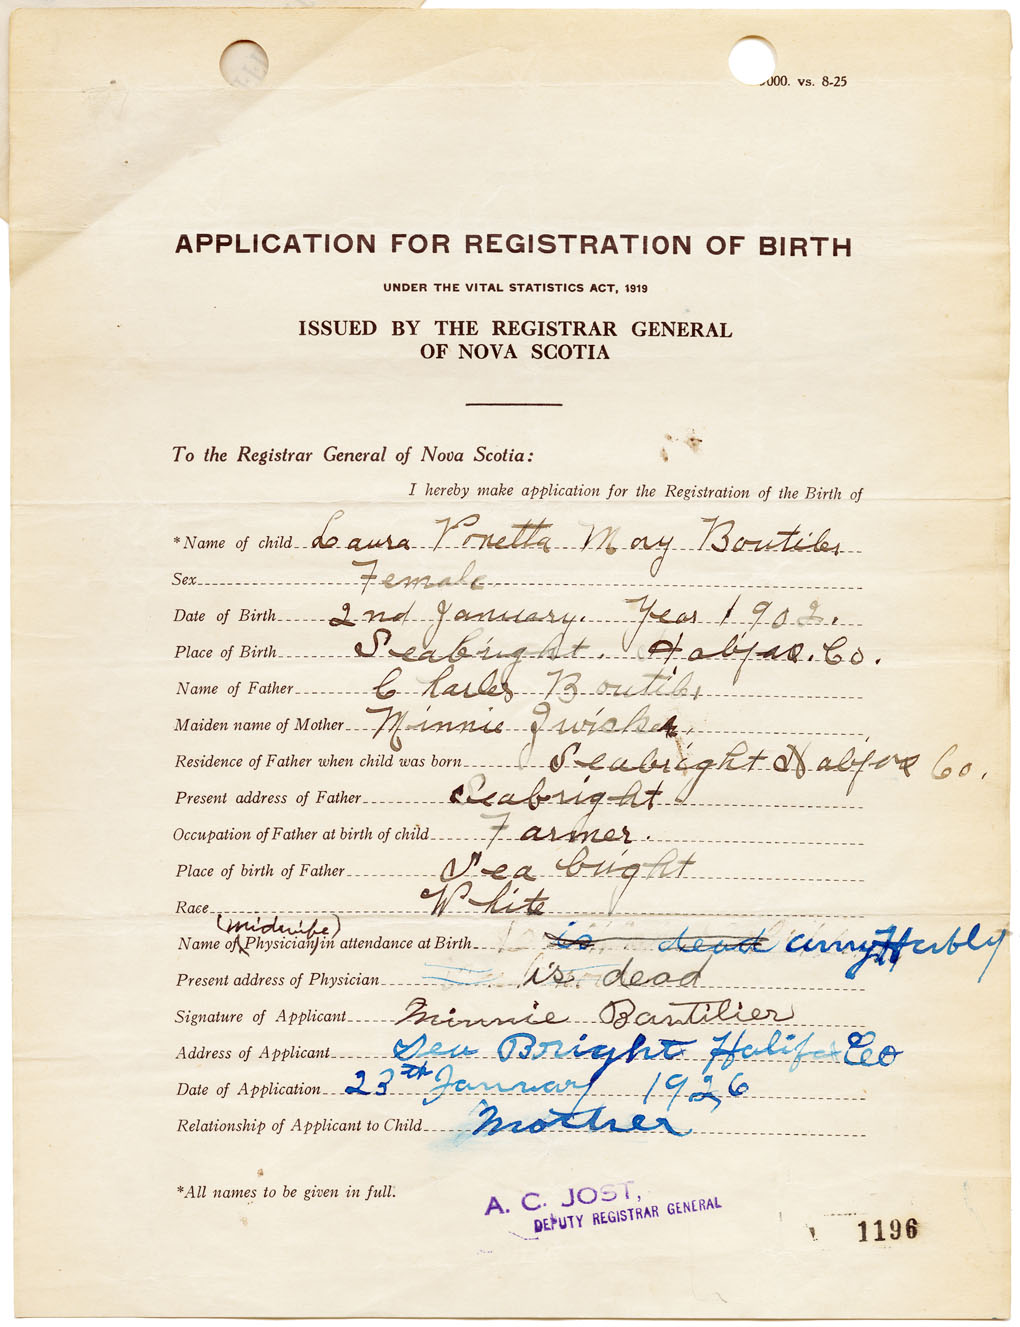 000. vs. 8-25
APPLICATION FOR REGISTRATION OF BIRTH
UNDER THE VITAL STATISTICS ACT, 1919
ISSUED BY THE REGISTRAR GENERAL
OF NOVA SCOTIA
To the Registrar General of Nova Scotia:
I hereby make application for the Registration of the Birth of
*Name of child Laura Vonetta May Boutilier
Sex Female
Date of Birth 2nd January. Year 1902.
Place of Birth Seabright. Halifax. Co.
Name of Father Charles Boutilier
Maiden name of Mother Minnie
Residence of Father when child was born Seabright Halifax Co.
Present address of Father Seabright
Occupation of Father at birth of child Farmer.
Place of birth of Father Sea bright
Race White
(midwife)
Name of Physician in attendance at Birth is dead
Present address of Physician is dead
Signature of Applicant Minnie
Address of Applicant Sea Bright Halifax Co
Date of Application 23th January 1926
Relationship of Applicant to Child Mother
*All names to be given in full.
A. C. JOST,
DEPUTY REGISTRAR GENERAL
1196